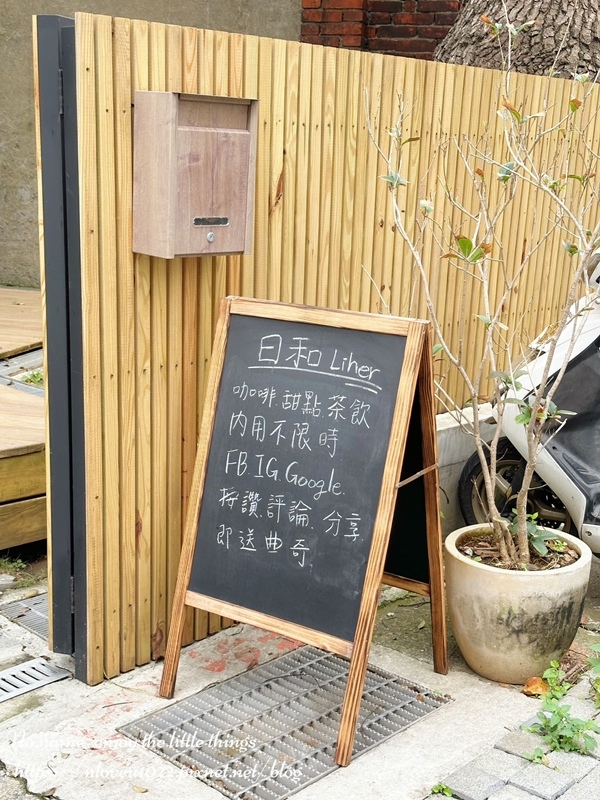 日和 Liher
咖啡.甜點.茶飲
內用不限時
FB.IG.Google.
按讚.評論.分享
即送曲奇
enjoy the little things